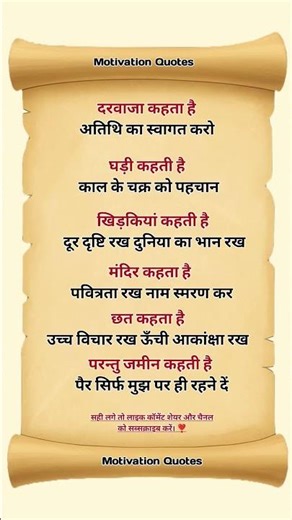 Motivation Quotes
दरवाजा कहता है
अतिथि का स्वागत करो
घड़ी कहती है
काल के चक्र को पहचान
खिड़कियां कहती है
दूर दृष्टि रख दुनिया का भान रख
मंदिर कहता है
पवित्रता रख नाम स्मरण कर
छत कहता है
उच्च विचार रख ऊँची आकांक्षा रख
परन्तु जमीन कहती है
पैर सिर्फ मुझ पर ही रहने दें
सही लगे तो लाइक कॉमेंट शेयर और चैनल
को सब्सक्राइब करें। ❣️
Motivation Quotes